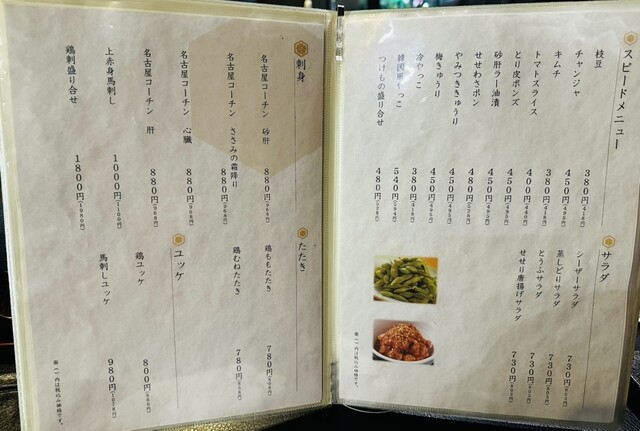 スピードメニュー
枝豆 380円(418)
チャンジャ 450円(495)
キムチ 380円(418)
トマトスライス 400円(440)
とり皮ポンズ 450円(495)
砂肝ラー油漬 450円(495)
せせわさポン 480円(528)
やみつききゅうり 450円(495)
梅きゅうり 450円(495)
冷やっこ 380円(418)
韓国風やっこ 540円(594)
つけもの盛り合せ 480円(528)
サラダ
シーザーサラダ 730円
蒸しどりサラダ 730円
とうふサラダ 730円
せせり唐揚げサラダ 730円
刺身
名古屋コーチン 砂肝 880円(968)
名古屋コーチン ささみの霜降り 880円(968)
名古屋コーチン 心臓 880円(968)
名古屋コーチン 肝 880円(968)
上赤身馬刺し 1000円(1100)
鶏刺盛り合せ 1800円(1980)
たたき
鶏ももたたき 780円
鶏むねたたき 780円
ユッケ
鶏ユッケ 800円
馬刺しユッケ 980円
※( )内は税込み価格です。
※( )内は税込み価格です。